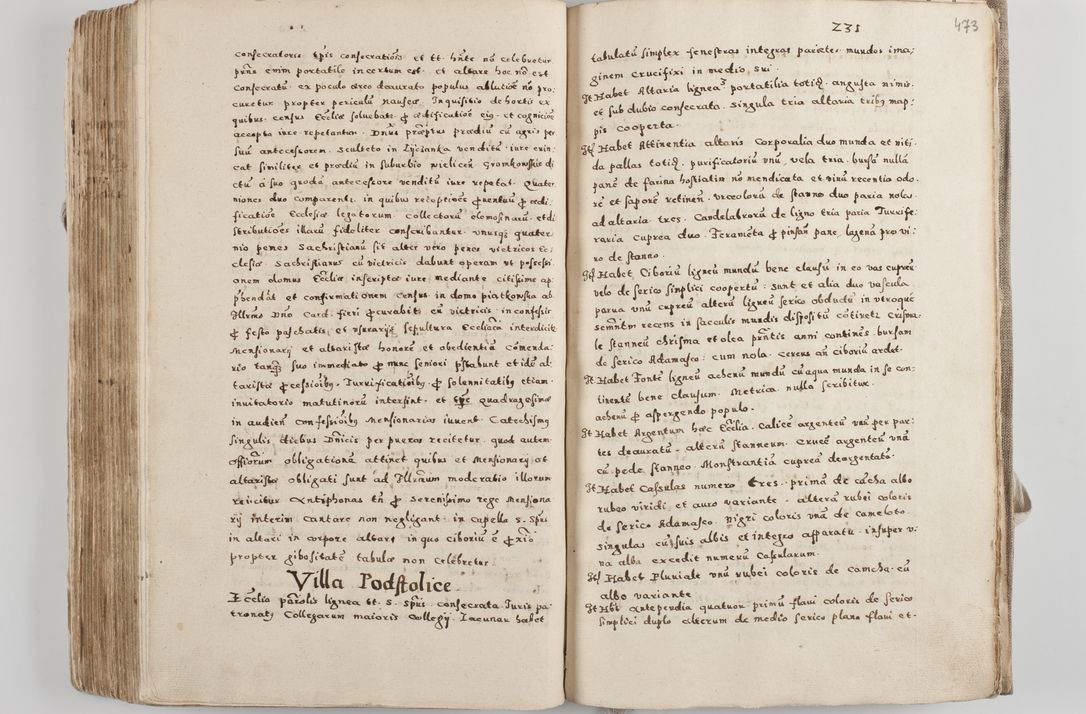 consecratoris epĩs consecratiõis et tt. hñte nõ celebretur
prũs enim portatile incertum est. et altare hoc nõ est
Consecratũ ex poculo areo deaurato populus ablutiõe nõ pro:
curetur propter periculũ nauseæ. Inquisitio de hortis ex
quibus census Eccłiæ soluebatr ꝓ ædificatiõe eiꝯ. et cognitiõe
accepta iure repetantur. Dnus præptus prædiũ cũ agris per
suũ antecessorem. Sculteto in Lyczanka venditũ iure euin:
cat similiter et prædiũ in suburbio wielicen Gromkowskie di:
ctũ á suo quoda antecessore venditũ iure repetat. Quater
niones duo comparentr. in quibus receptiões ꝓuentuũ ꝓ ædi:
ficatiõe Ecclesiæ legatorum. Collectarũ elemosinarũ. et di
stributiões illarũ fideliter conscribantur. vnusqꝫ quater
nio penes Sachristianũ sit alter vero penes victricos Ec:
clesiæ. Sachristianus cũ victricis dabunt operam vt possessi:
onem domus Eccłiæ inscriptæ iure mediante citissime ap:
pꝛehendãt et confirmationem Census in domo piątkowska ab
Illrmo Dño Card. fieri ꝓcurabũt cũ victricis. in confessis
ꝓ festo paschatis et vsurarijs sepultura Eccłica interdicitr
Mensionarij et altaristæ honorẽ et obedientiã Cõmenda:
rio tanqꝫ suo immediato ꝓ nunc seniori pꝛstabunt et idẽ al:
taristæ ꝓcessioĩbꝯ. Turrificatiõibꝯ ꝓ solennitatibꝯ etiam
inuitatorio matutinorũ intersint. et tpẽ quadragesimæ
in audiẽn Confessioĩbꝯ Mensionarios iuuent. Catechismꝯ
singulis diebus Dñicis per pueros recitetur. quod autem
officiorum obligationẽ attinet quibus et Mensionarij et
altaristæ obligati sunt ad Illrmum moderatio illorum
reijcitur Antiphonas tñ ꝓ Serenissimo rege Mensiona
rij interim cantare non negligant. in capella S. Spũs
in altari in corpore altare in quo ciborium ẽ ꝓxio
propter gibositatẽ tabulæ non celebretur.
Villa Podstolice
Eccłia parołis lignea tt. S. Spũs consecrata. Iuris pa:
tronatꝯ Collegarum maioris Collegij. Lacunar habet

231 473
tabulatũ simplex fenestras integras parietes mundos ima:
ginem Crucifixi in medio sui.
It Habet Altaria lignea 3 portatilia totiꝫ. angusta nimis.
et sub dubio consecrata. Singula tria altaria tribꝯ map:
pis cooperta.
It Habet Attinentia altaris Corporalia duo munda et niti:
da pallas totiꝫ. purificatoriũ vnũ. vela tria. bursã nullã
panẽ de farina hostiatim nõ mendicata et vinũ recentia odo:
rẽ et saporẽ retinen. vrceolorũ de stanno duo paria nolas
ad altaria tres. Candelabrorũ de ligno tria paria Turrife:
raria cuprea duo. Ferameta ꝓ pinsan pane. lagena pro vi:
no de stanno.
It Habet Ciboriũ ligneũ mundũ bene clausũ in eo vas cupreũ
velo de serico simplici coopertũ: sunt et alia duo vascula
parua vnũ cupreũ alterũ ligneũ serico obductũ in vtroque
sacmẽntm recens in sacculis mundis dispositũ cõtinetr. Crisma:
le stanneũ chrisma et olea prñtis anni continẽs. bursam
de serico Adamasco: cum nola. cereus añ ciboriũ ardet.
It Habet Fontẽ ligneũ aeheneũ mundũ cũ aqua munda in se con:
tinentẽ bene clausum. Metrica nulla scribitur.
aehenũ ꝓ aspergendo populo.
It Habet Argentum hæc Eccłia. Calicẽ argenteũ vnũ per par:
tes deauratũ. alterũ stanneum. Crucẽ argenteũ vnã
cũ pede stanneo. Monstrantiã cupreã deargentatã.
It Habet Casulas numero tres. primã de cacha albo
rubeo viridi et auro variante. alterã rubei coloris
de serico Adamasco. Nigri coloris vnã de cameloto.
singulas cũ suis albis et integro apparatu. insuper v:
na alba excedit numerũ Casularum.
It Habet Pluuiale vnũ rubei coloris de camcha. cũ
albo variante
It Hãt Antependia quatuor primũ flaui coloris de serico
simplici duplo alterum de medio serico plano flaui et